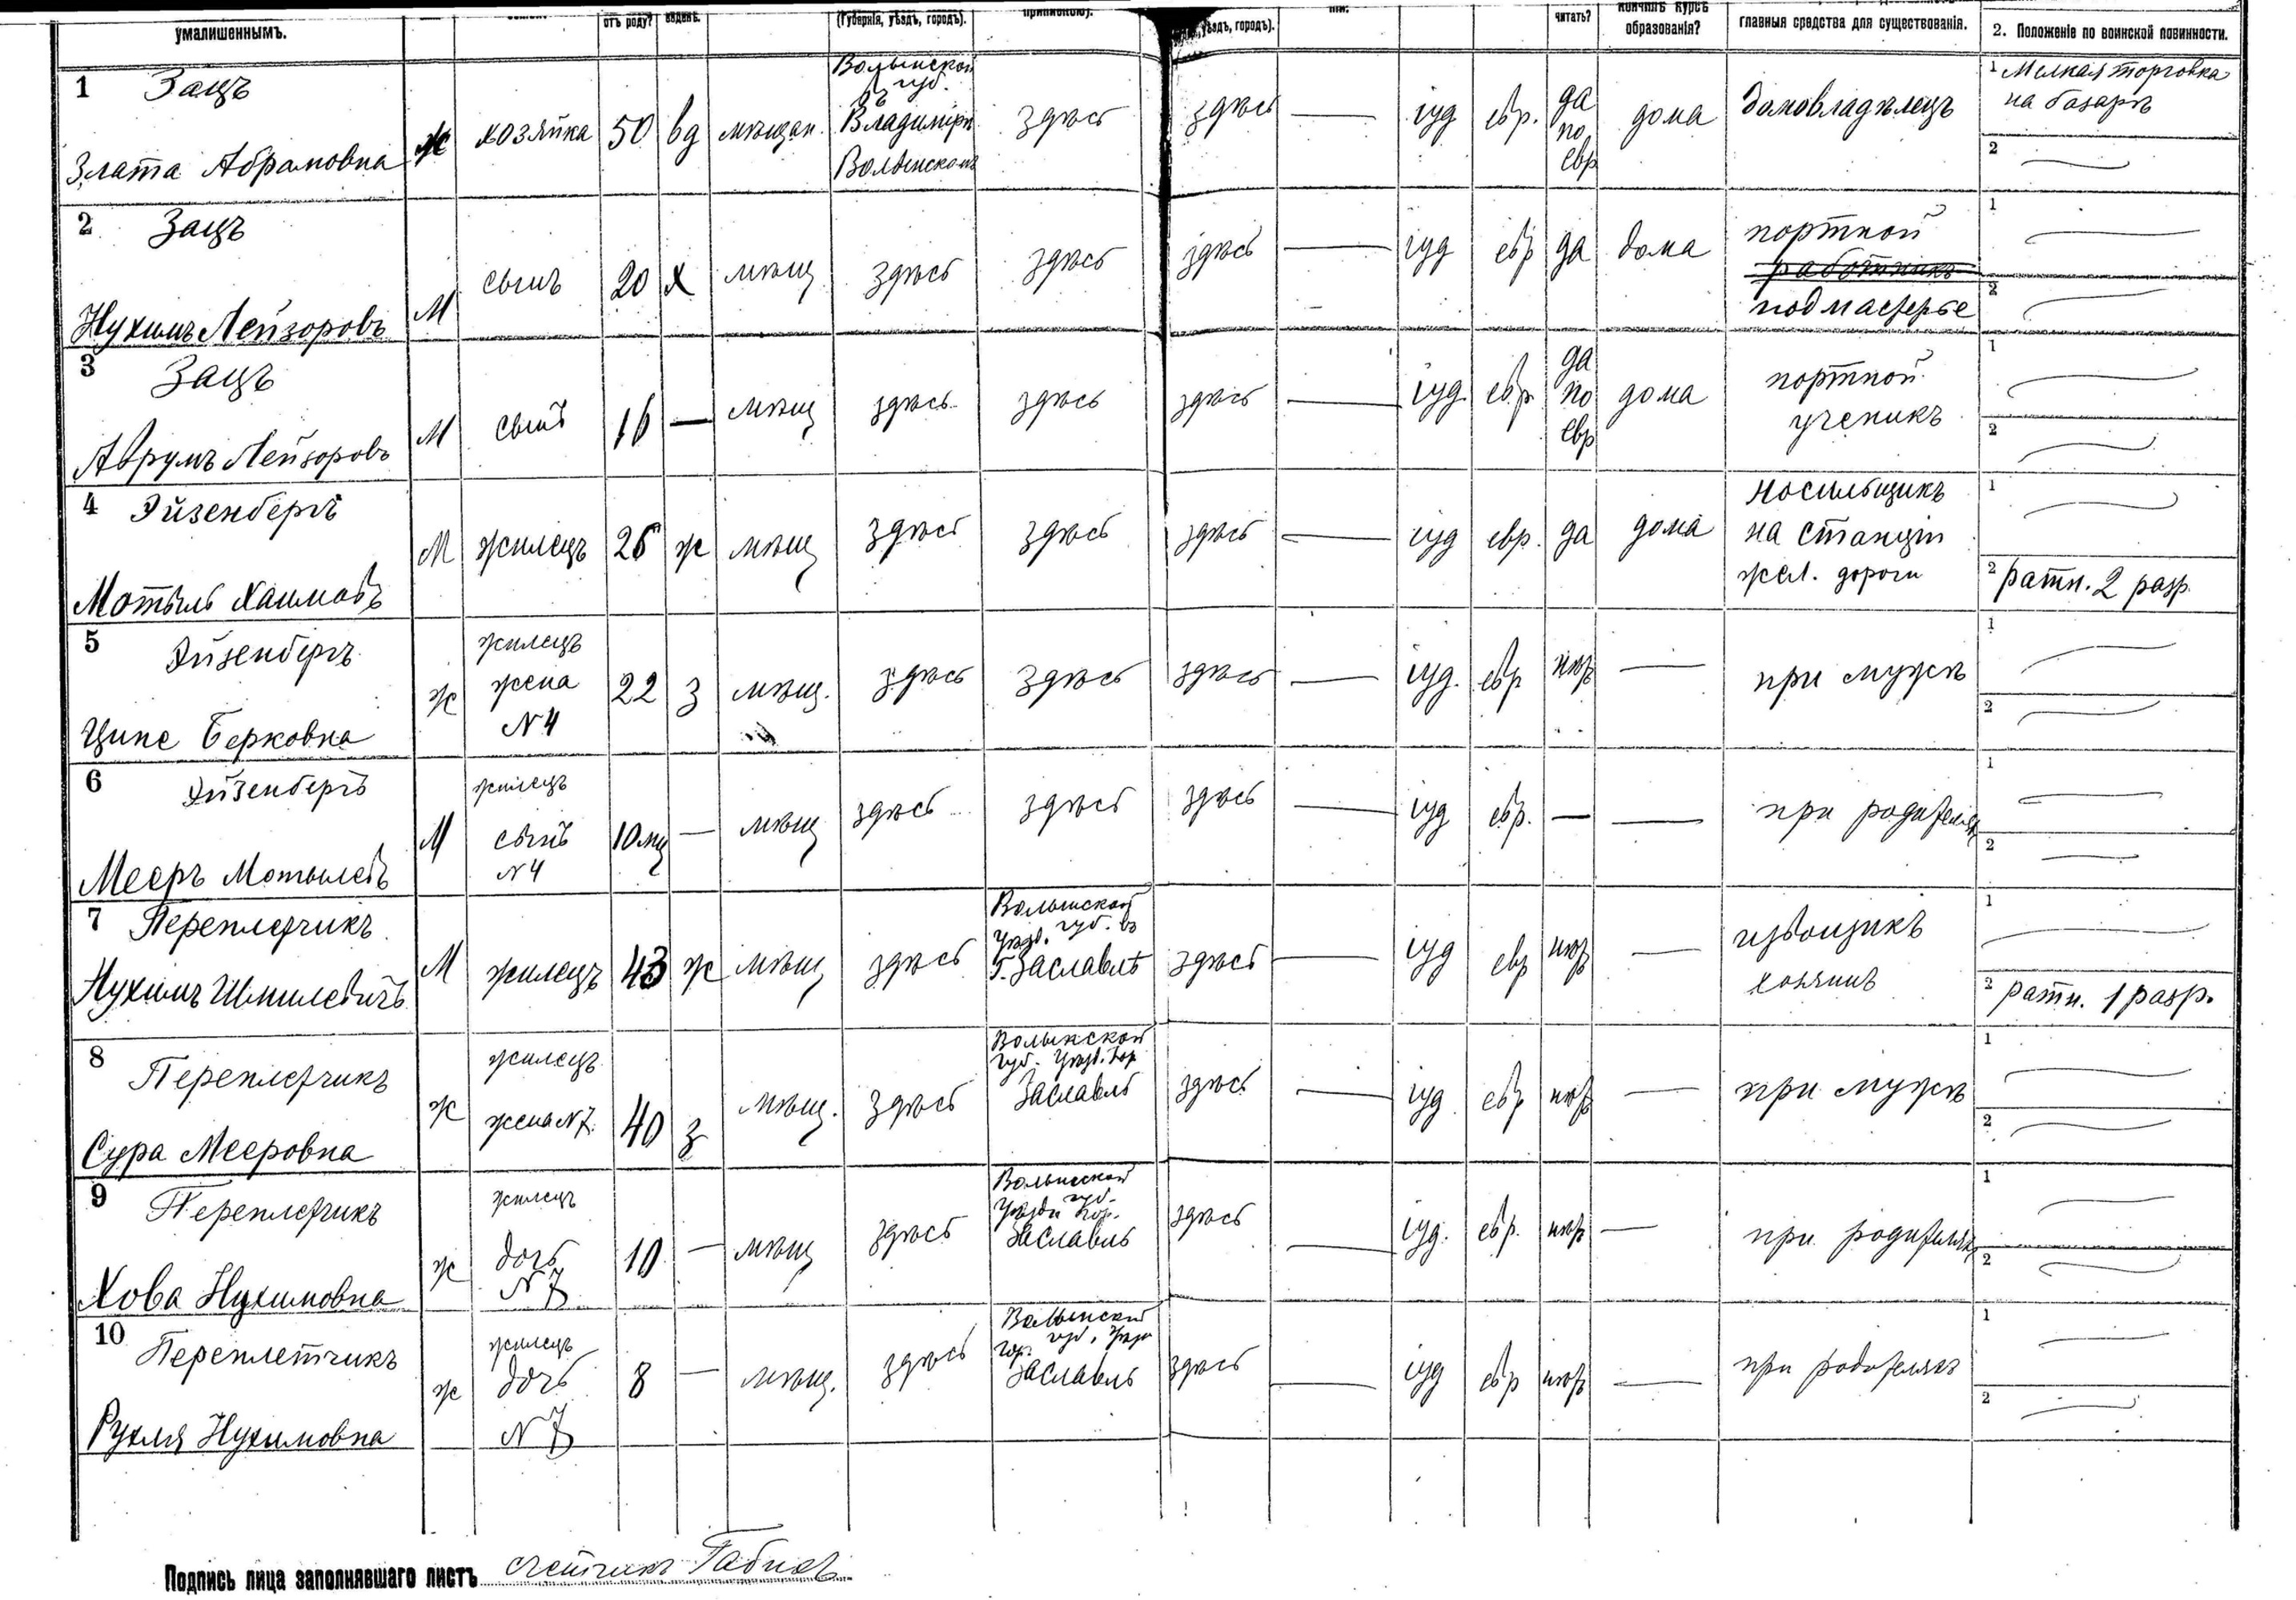 умалишеннымъ.
отъ роду?
(Губернія, уѣздъ, городъ).
уѣздъ, городъ).
читать?
кончилъ курсъ
образованія?
главныя средства для существованія.
2. Положеніе по воинской повинности.
1 Зацъ
Злата Абрамовна
ж
хозяйка
50
вд
мѣщан.
Волынской
губ.
въ
Владимірѣ
Волынскомъ
здѣсь
здѣсь
іуд
евр.
да
по
евр
дома
домовладѣлецъ
1 Мелкая торговка
на базарѣ
2
2 Зацъ
Нухимъ Лейзоровъ
М
сынъ
20
х
мѣщ
здѣсь
здѣсь
здѣсь
іуд
евр
да
дома
портной
работникъ
подмастерье
1
2
3 Зацъ
Аврумъ Лейзоровъ
М
сынъ
16
—
мѣщ
здѣсь
здѣсь
здѣсь
іуд.
евр.
да
по
евр
дома
портной
ученикъ
1
2
4 Эйзенбергъ
Мотыль Хаимовъ
М
жилецъ
26
ж
мѣщ
здѣсь
здѣсь
здѣсь
іуд
евр.
да
дома
носильщикъ
на станціи
жел. дороги
1
2 ратн. 2 разр.
5 Эйзенбергъ
Ципе Берковна
ж
жилецъ
жена
№4
22
з
мѣщ.
здѣсь
здѣсь
здѣсь
іуд.
евр
нѣтъ
при мужѣ
1
2
6 Эйзенбергъ
Мееръ Мотылевъ
М
жилецъ
сынъ
№4
10 мц
—
мѣщ
здѣсь
здѣсь
здѣсь
іуд
евр.
—
при родителяхъ
1
2
7 Переплетчикъ
Нухимъ Шмилевичъ
М
жилецъ
43
ж
мѣщ
здѣсь
Волынской
Уѣзд. губ. въ
г. Заславлѣ
здѣсь
іуд
евр
нѣтъ
извощикъ
хозяинъ
1
2 ратн. 1 разр.
8 Переплетчикъ
Сура Мееровна
ж
жилецъ
жена №7.
40
з
мѣщ.
здѣсь
Волынской
губ. Уѣзд. гор
Заславль
здѣсь
іуд
евр
нѣтъ
при мужѣ
1
2
9 Переплетчикъ
Хова Нухимовна
ж
жилецъ
дочь
№7
10
—
мѣщ
здѣсь
Волынской
губ.
гор.
Заславль
здѣсь
іуд.
евр.
нѣтъ
при родителяхъ
1
2
10 Переплетчикъ
Рухля Нухимовна
ж
жилецъ
дочь
№7
8
—
мѣщ.
здѣсь
Волынской
гор. губ.
Заславль
здѣсь
іуд
евр
нѣтъ
при родителяхъ
1
2
Подпись лица заполнявшаго листъ счетчикъ